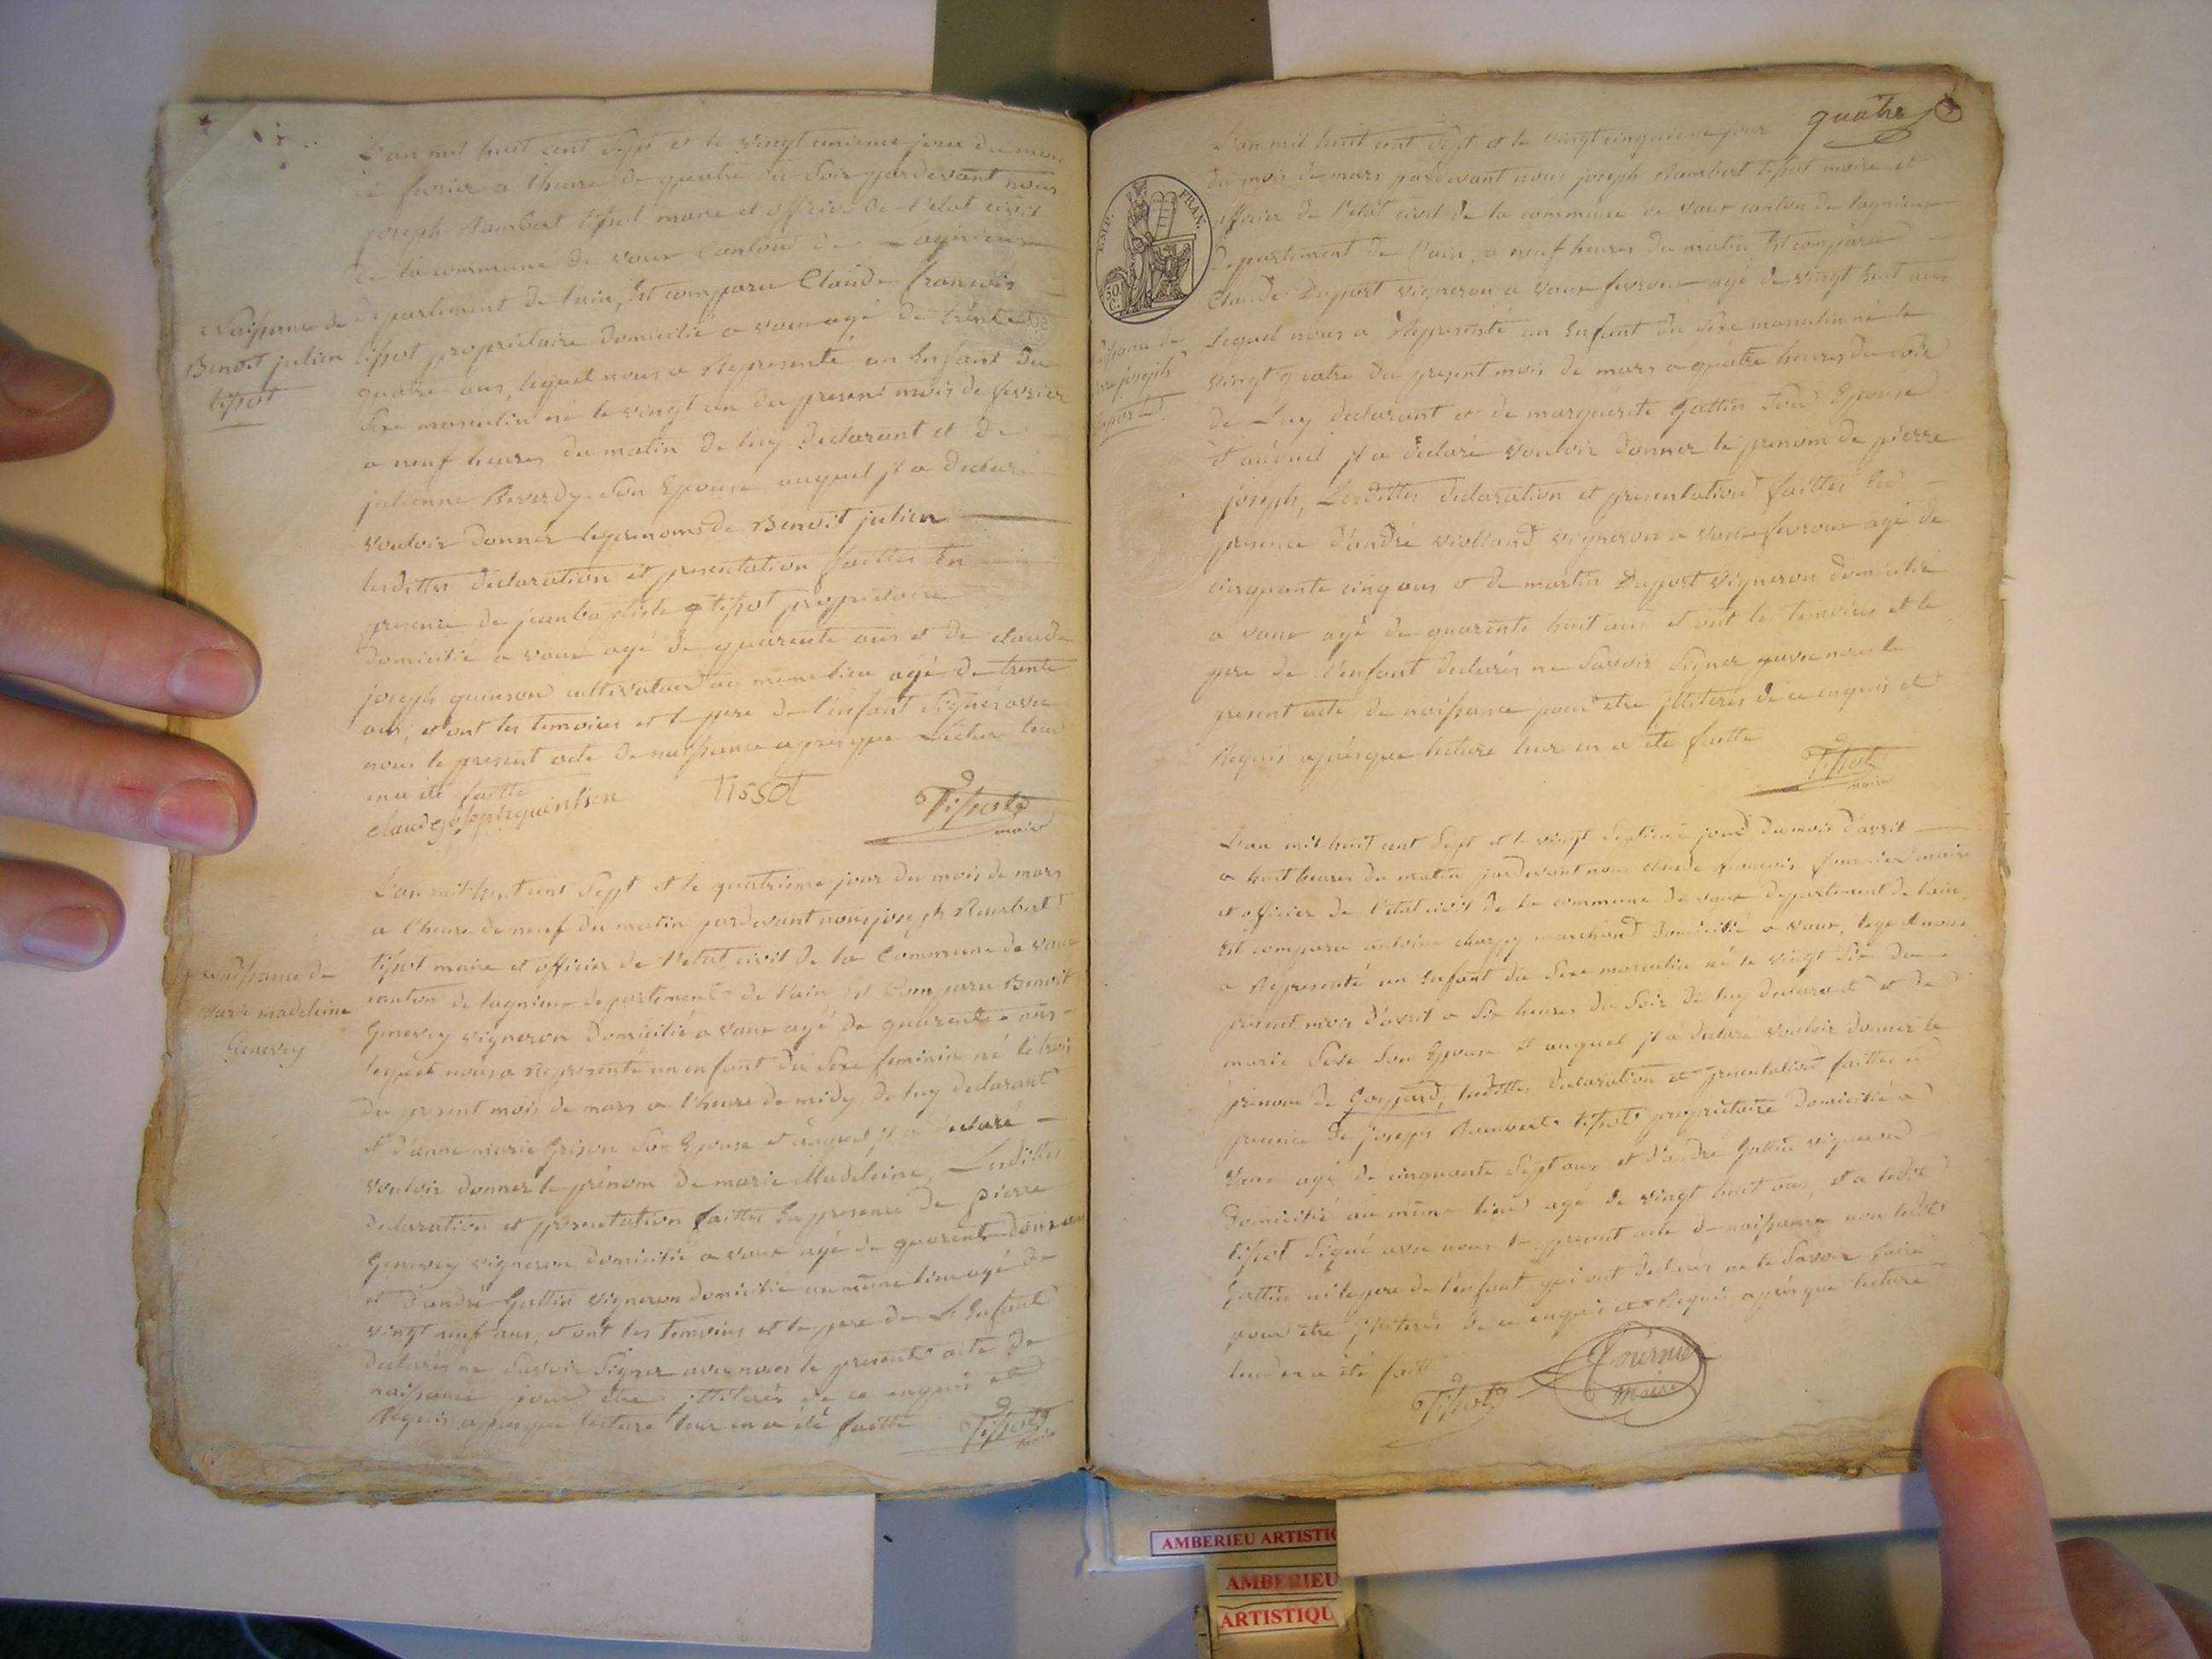 L'an mil huit cent sept et le vingt unieme jour du mois
de fevrier a l'heure de quatre du soir pardevant nous
joseph Rambert tissot maire et officier de l'etat civil
de la commune de vaux Canton de Lagnieux
departement de l'ain, Est comparu Claude francois
tissot proprietaire domicilié a vaux agé de trente
quatre ans, lequel nous a Representé un Enfant du
sexe masculin né le vingt un du present mois de fevrier
a neuf heures du matin de luy declarant et de
julienne Beverdy son Epouse auquel jl a declaré
vouloir donner les prenoms de Benoit julien
lesdittes declaration et presentation faittes En
presence de jean baptiste tissot proprietaire
domicilié a vaux agé de quarente ans et de claude
joseph quinson cultivateur au même lieu agé de trente
ans, et ont les temoins et le pere de l'enfant signés avec
nous le present acte de naissance apres que Lecture leur
en a été faitte
claude joseph quinson
Tissot
Tissot
maire
Naissance de
Benoit julien
tissot
L'an mil huit cent sept et le quatrieme jour du mois de mars
a l'heure de neuf du matin pardevant nous joseph Rambert
tissot maire et officier de l'etat civil de la Commune de vaux
canton de lagnieux departement de l'ain Est Comparu Benoit
Genevey vigneron domicilié a vaux agé de quarente ans
lequel nous a Representé un enfant du sexe feminin né le trois
du present mois de mars a l'heure de midy, de luy declarant
et d'anne marie Grison son Epouse et auquel jl a declaré
vouloir donner le prénom de marie Madeleine, Lesdittes
declaration et presentation faittes En presence de pierre
Genevey vigneron domicilié a vaux agé de quarente douze ans
et d'andré Gattin vigneron domicilié au même lieu agé de
vingt neuf ans, et ont les temoins et le pere de L'Enfant
declarés ne savoir signer avec nous le present acte de
naissance pour être jlliterés de ce enquis et
Requis apres que lecture leur en a été faitte
Tissot
maire
Naissance de
Marie madeleine
Genevey
quatre
L'an mil huit cent sept et le vingt cinquieme jour
du mois de mars pardevant nous joseph Rambert tissot maire et
officier de l'etat civil de la commune de vaux canton de lagnieux
departement de l'ain, a neuf heures du matin, Est comparu
Claude Duport vigneron a vaux fevroux agé de vingt huit ans
Lequel nous a Representé un Enfant du sexe masculin né le
vingt quatre du present mois de mars a quatre heures du soir
de Luy declarant et de marguerite Gattin son Epouse
et auquel jl a declaré vouloir donner le prenom de pierre
joseph, Lesdittes declaration et presentation faittes En
presence d'andré violland vigneron a vaux fevroux agé de
cinquante cinq ans et de martin Duport vigneron domicilié
a vaux agé de quarente huit ans et ont les temoins et le
pere de l'enfant declarés ne savoir signer avec nous le
present acte de naissance pour être jlliterés de ce enquis et
Requis après que lecture leur en a été faitte
Tissot
maire
EMP. FRAN.
50 C.
joseph
L'an mil huit cent sept et le vingt septieme jour du mois d'avril
a huit heures du matin pardevant nous claude francois fournier maire
et officier de l'etat civil de la commune de vaux departement de l'ain,
Est comparu antoine charpy marchand domicilié a vaux, lequel nous
a Representé un Enfant du sexe masculin né le vingt six du
present mois d'avril a six heures du soir de luy declarant et de
marie seve son Epouse et auquel jl a declaré vouloir donner le
prenom de Gaspard, lesdittes declaration et presentation faittes en
presence de joseph Rambert tissot proprietaire domicilié a
vaux agé de cinquante sept ans et d'andré Gattin vigneron
domicilié au même lieu agé de vingt huit ans, et a ledit
tissot signé avec nous le present acte de naissance non ledit
Gattin ni le pere de l'enfant qui ont declarés ne le savoir faire
pour être jlliterés de ce enquis et Requis après que lecture
leur en a été faitte
Tissot
Fournier
maire
AMBERIEU ARTISTIQ
AMBERIEU
ARTISTIQU